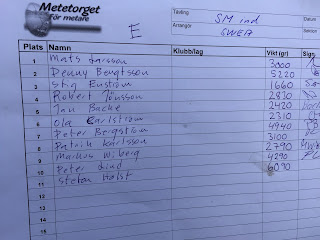 Metetorget
för metare
E
Tävling SM ind
Datum
Arrangör SWEA
Sektion
Plats Namn Klubb/lag Vikt (gr) Sign
1 Mats Larsson 3000
2 Denny Bengtsson 5220
3 Stig Enström 1660
4 Robert Jönsson 2830
5 Jan Backe 2420
6 Ola Carlström 2310
7 Peter Bergström 4940
8 Patrik Karlsson 3100
9 Markus Wiberg 2790
10 Peter Lind 4290
11 Stefan Holst 6090
12
13
14
15